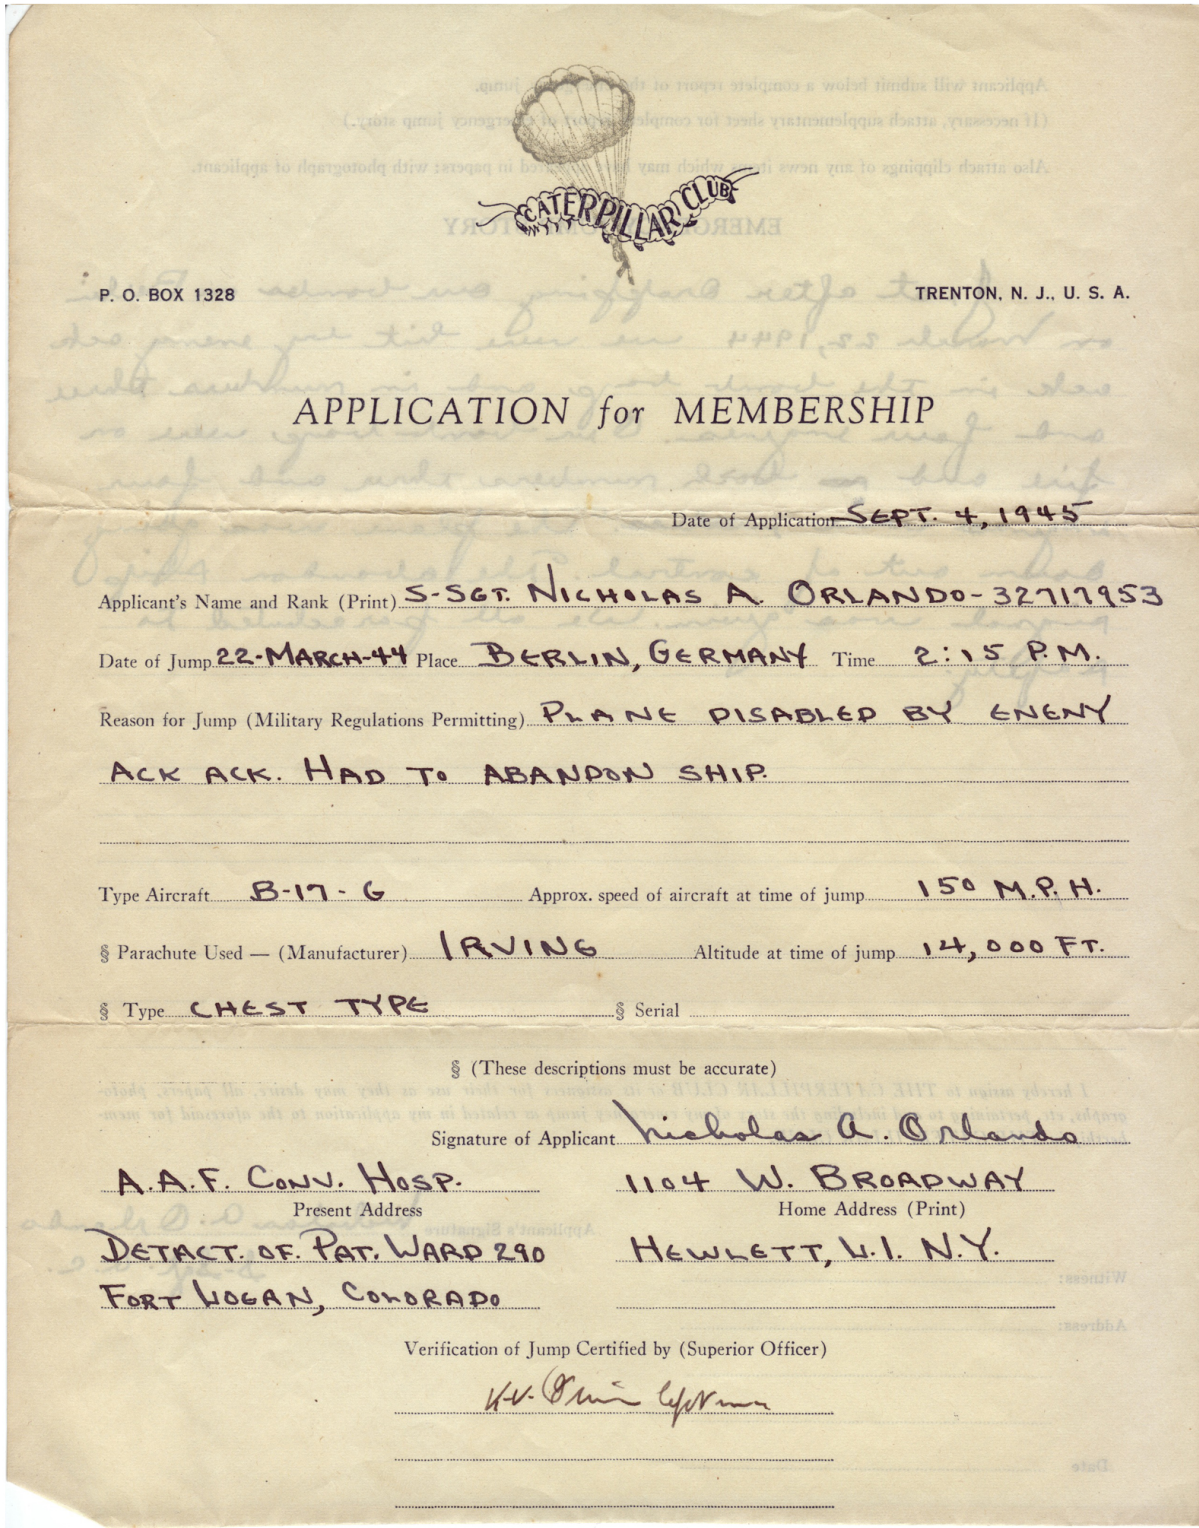 CATERPILLAR CLUB
P. O. BOX 1328 TRENTON, N. J., U. S. A.
APPLICATION for MEMBERSHIP
Date of Application SEPT. 4, 1945
Applicant's Name and Rank (Print) S-SGT. NICHOLAS A. ORLANDO-32717953
Date of Jump 22-MARCH-44 Place BERLIN, GERMANY Time 2:15 P.M.
Reason for Jump (Military Regulations Permitting) PLANE DISABLED BY ENENY
ACK ACK. HAD TO ABANDON SHIP.
Type Aircraft B-17-G Approx. speed of aircraft at time of jump 150 M.P.H.
§ Parachute Used — (Manufacturer) IRVING Altitude at time of jump 14,000 FT.
§ Type CHEST TYPE § Serial
§ (These descriptions must be accurate)
Signature of Applicant Nicholas A. Orlando
A.A.F. CONV. HOSP. 1104 W. BROADWAY
Present Address Home Address (Print)
DETACT. OF. PAT. WARD 290 HEWLETT, L.I. N.Y.
FORT LOGAN, COLORADO
Verification of Jump Certified by (Superior Officer)